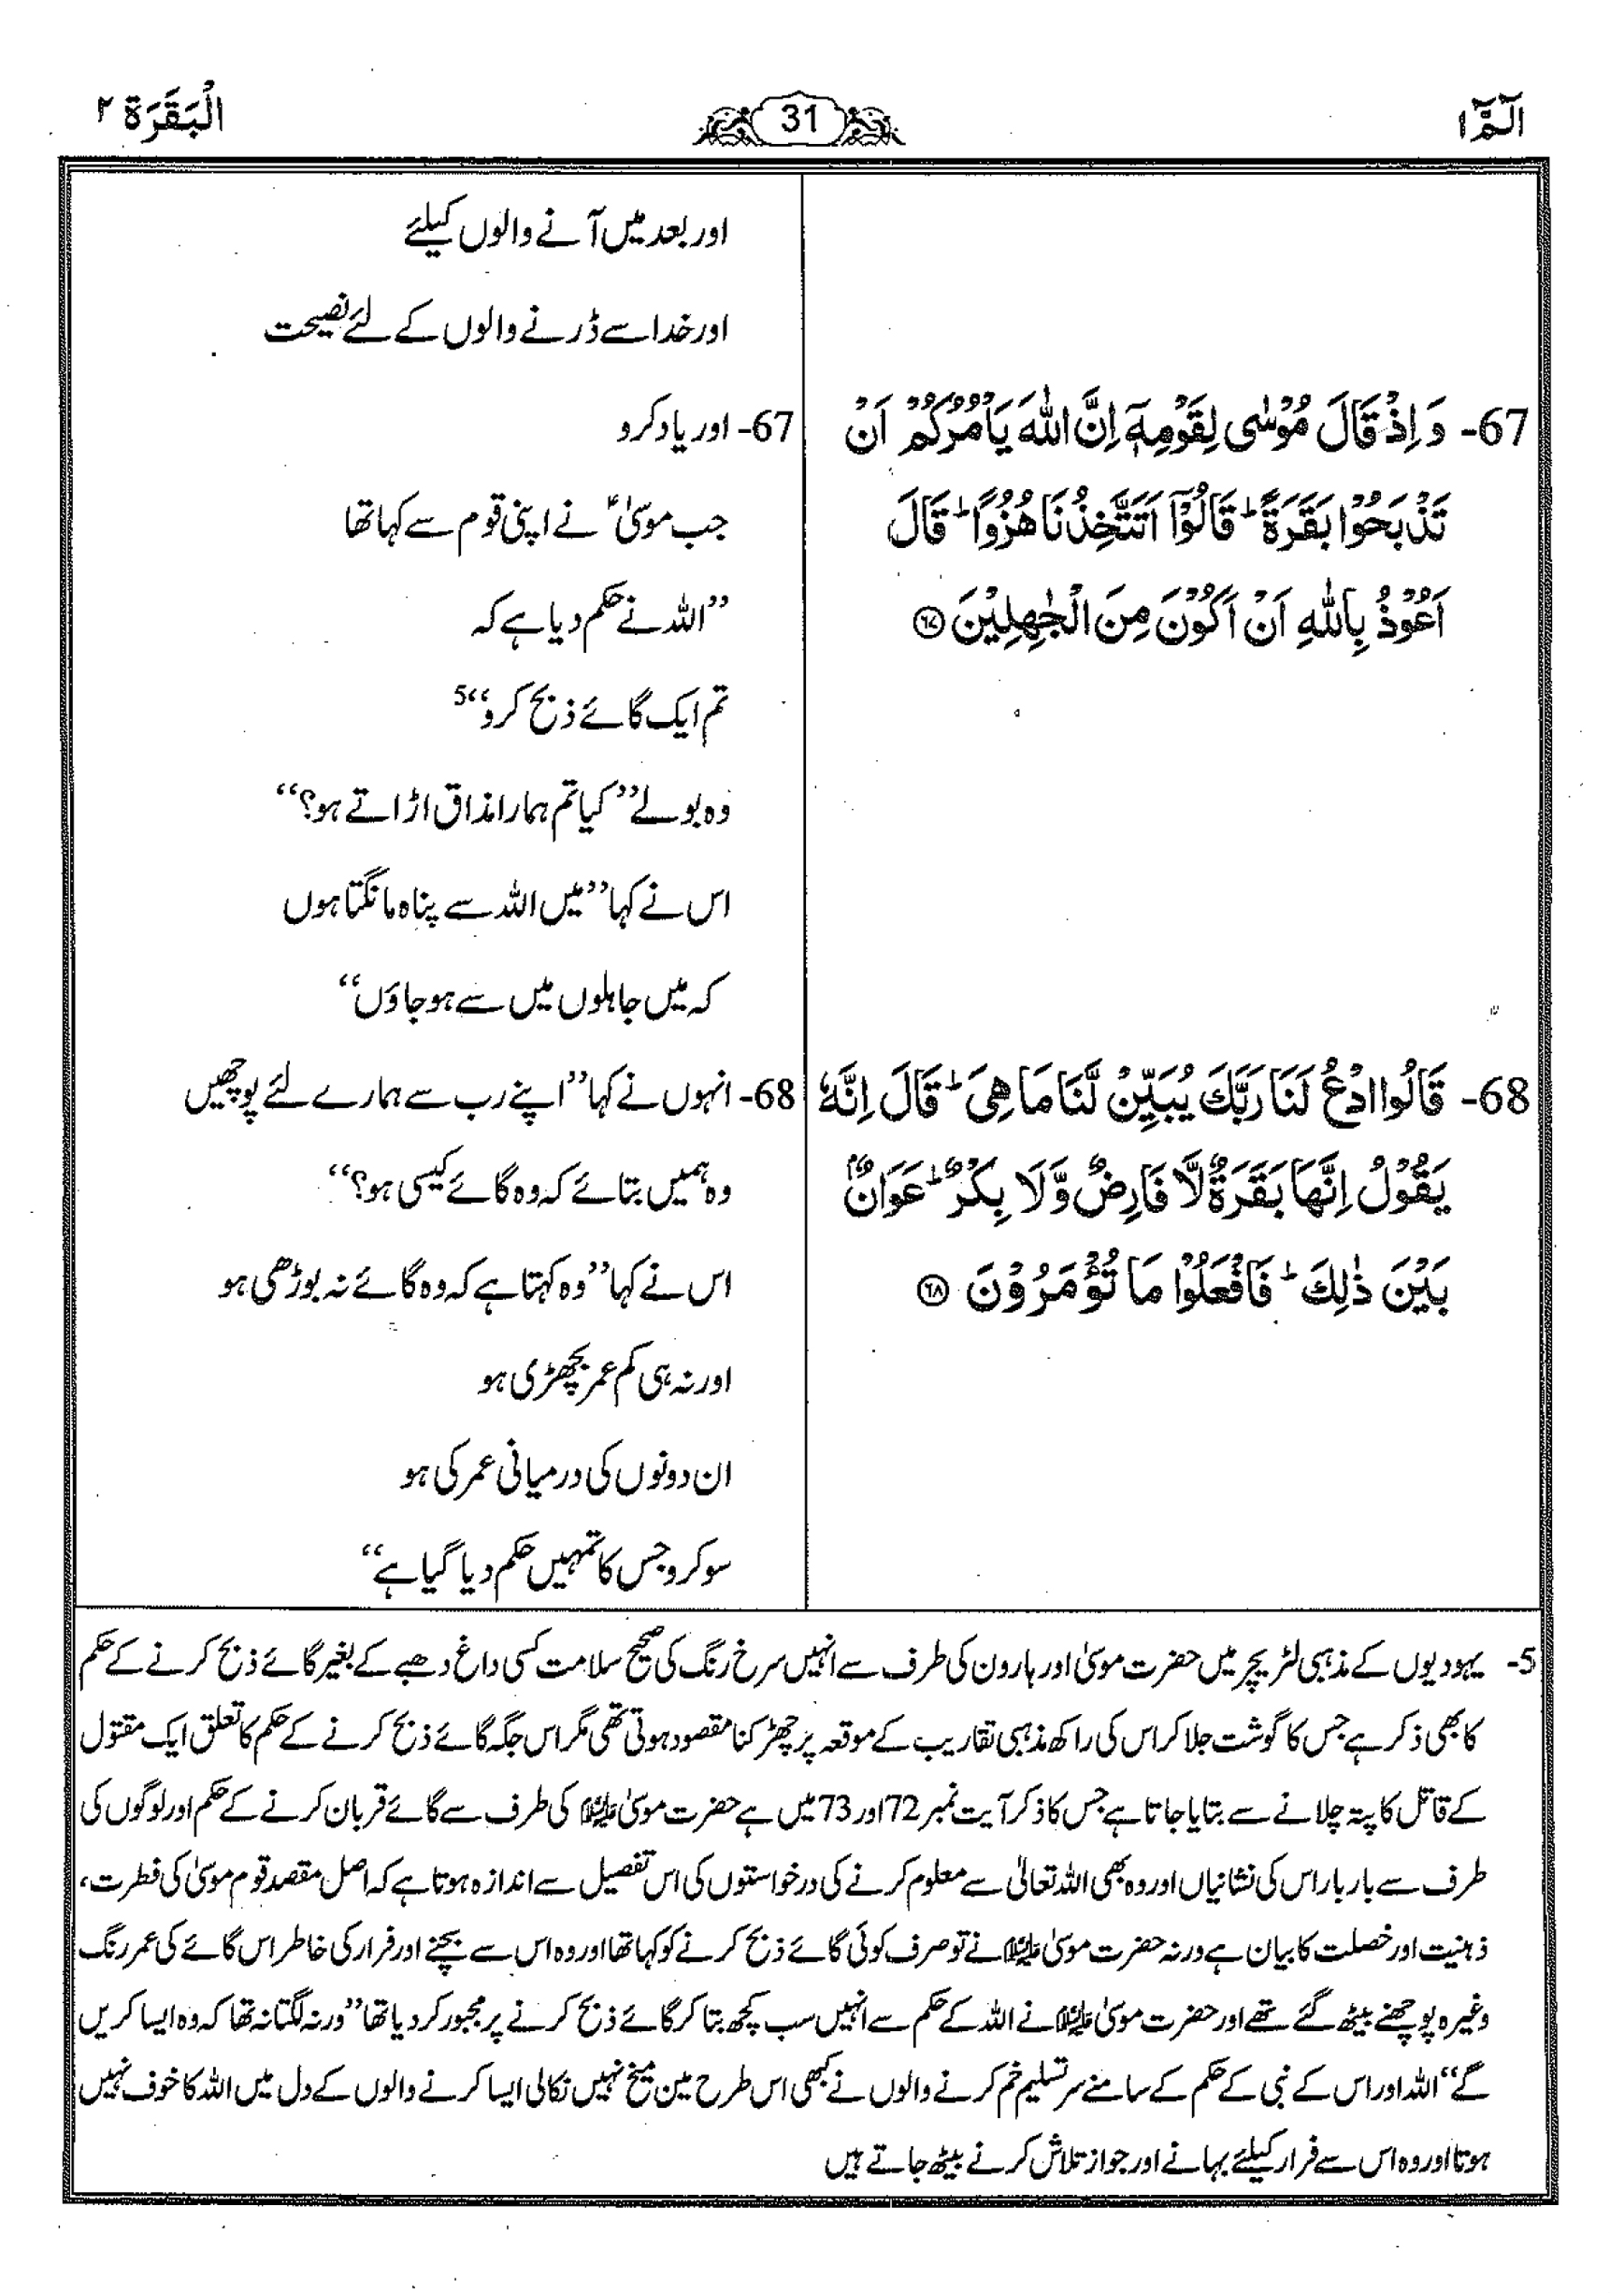 الٓمّٓ ۱
31
الْبَقَرَة ۲
67- وَ اِذْ قَالَ مُوْسٰى لِقَوْمِهٖۤ اِنَّ اللّٰهَ یَاْمُرُكُمْ اَنْ
تَذْبَحُوْا بَقَرَةً ؕ قَالُوْۤا اَتَتَّخِذُنَا هُزُوًا ؕ قَالَ
اَعُوْذُ بِاللّٰهِ اَنْ اَكُوْنَ مِنَ الْجٰهِلِیْنَ ۶۷
68- قَالُوا ادْعُ لَنَا رَبَّكَ یُبَیِّنْ لَّنَا مَا هِیَ ؕ قَالَ اِنَّهٗ
یَقُوْلُ اِنَّهَا بَقَرَةٌ لَّا فَارِضٌ وَّلَا بِكْرٌ ؕ عَوَانٌۢ
بَیْنَ ذٰلِكَ ؕ فَافْعَلُوْا مَا تُؤْمَرُوْنَ ۶۸
اور بعد میں آنے والوں کیلئے
اور خدا سے ڈرنے والوں کے لئے نصیحت
67- اور یاد کرو
جب موسیٰؑ نے اپنی قوم سے کہا تھا
’’اللہ نے حکم دیا ہے کہ
تم ایک گائے ذبح کرو‘‘5
وہ بولے’’ کیا تم ہمارا مذاق اڑاتے ہو؟‘‘
اس نے کہا’’ میں اللہ سے پناہ مانگتا ہوں
کہ میں جاہلوں میں سے ہو جاؤں‘‘
68- انہوں نے کہا’’ اپنے رب سے ہمارے لئے پوچھیں
وہ ہمیں بتائے کہ وہ گائے کیسی ہو؟‘‘
اس نے کہا’’ وہ کہتا ہے کہ وہ گائے نہ بوڑھی ہو
اور نہ ہی کم عمر بچھڑی ہو
ان دونوں کی درمیانی عمر کی ہو
سو کرو جس کا تمہیں حکم دیا گیا ہے‘‘
5- یہودیوں کے مذہبی لٹریچر میں حضرت موسیٰ اور ہارون کی طرف سے انہیں سرخ رنگ کی صحیح سلامت کسی داغ دھبے کے بغیر گائے ذبح کرنے کے حکم
کا بھی ذکر ہے جس کا گوشت جلا کر اس کی راکھ مذہبی تقاریب کے موقعہ پر چھڑکنا مقصود ہوتی تھی مگر اس جگہ گائے ذبح کرنے کے حکم کا تعلق ایک مقتول
کے قاتل کا پتہ چلانے سے بتایا جاتا ہے جس کا ذکر آیت نمبر 72 اور 73 میں ہے حضرت موسیٰ علیہ السلام کی طرف سے گائے قربان کرنے کے حکم اور لوگوں کی
طرف سے بار بار اس کی نشانیاں اور وہ بھی اللہ تعالیٰ سے معلوم کرنے کی درخواستوں کی اس تفصیل سے اندازہ ہوتا ہے کہ اصل مقصد قوم موسیٰ کی فطرت،
ذہنیت اور خصلت کا بیان ہے ورنہ حضرت موسیٰ علیہ السلام نے تو صرف کوئی گائے ذبح کرنے کو کہا تھا اور وہ اس سے بچنے اور فرار کی خاطر اس گائے کی عمر رنگ
وغیرہ پوچھنے بیٹھ گئے تھے اور حضرت موسیٰ علیہ السلام نے اللہ کے حکم سے انہیں سب کچھ بتا کر گائے ذبح کرنے پر مجبور کر دیا تھا’’ ورنہ لگتا نہ تھا کہ وہ ایسا کریں
گے‘‘ اللہ اور اس کے نبی کے حکم کے سامنے سر تسلیم خم کرنے والوں نے کبھی اس طرح مین میخ نہیں نکالی ایسا کرنے والوں کے دل میں اللہ کا خوف نہیں
ہوتا اور وہ اس سے فرار کیلئے بہانے اور جواز تلاش کرنے بیٹھ جاتے ہیں